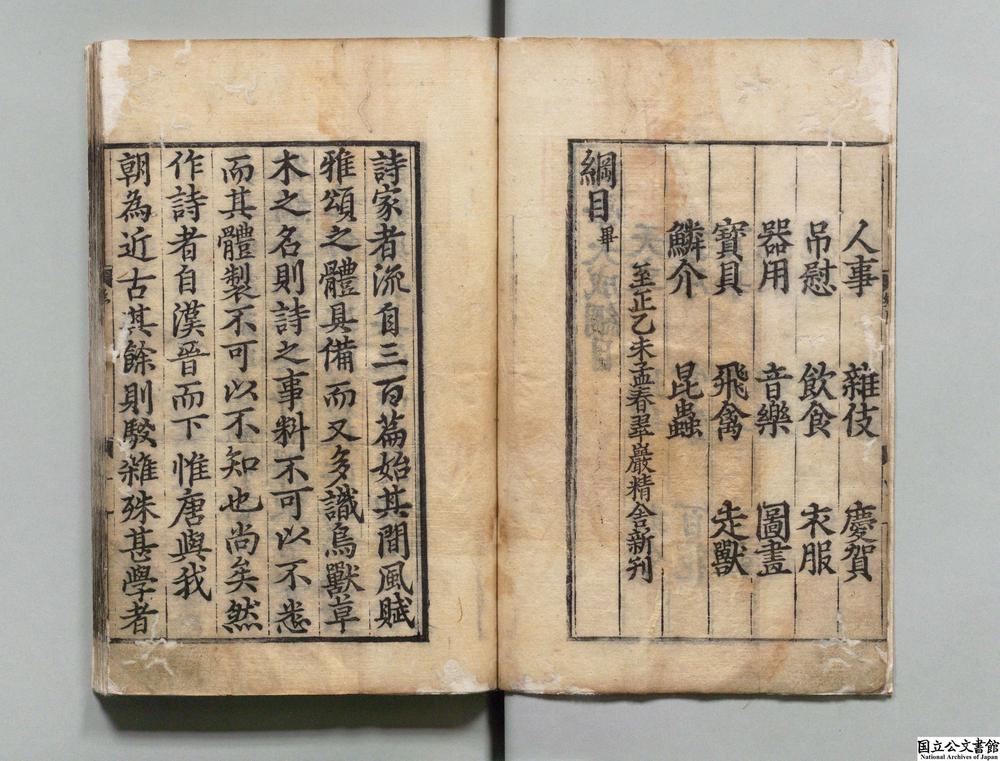 人事 雜伎 慶賀
吊慰 飲食 衣服
器用 音樂 圖畫
寶貝 飛禽 走獸
鱗介 昆蟲
至正乙未孟春翠巖精舍新刊
綱目畢
詩家者流自三百篇始其間風賦
雅頌之體具備而又多識鳥獸草
木之名則詩之事料不可以不悉
而其體製不可以不知也尚矣然
作詩者自漢晉而下惟唐與我
朝為近古其餘則駁雜殊甚學者
国立公文書館
National Archives of Japan